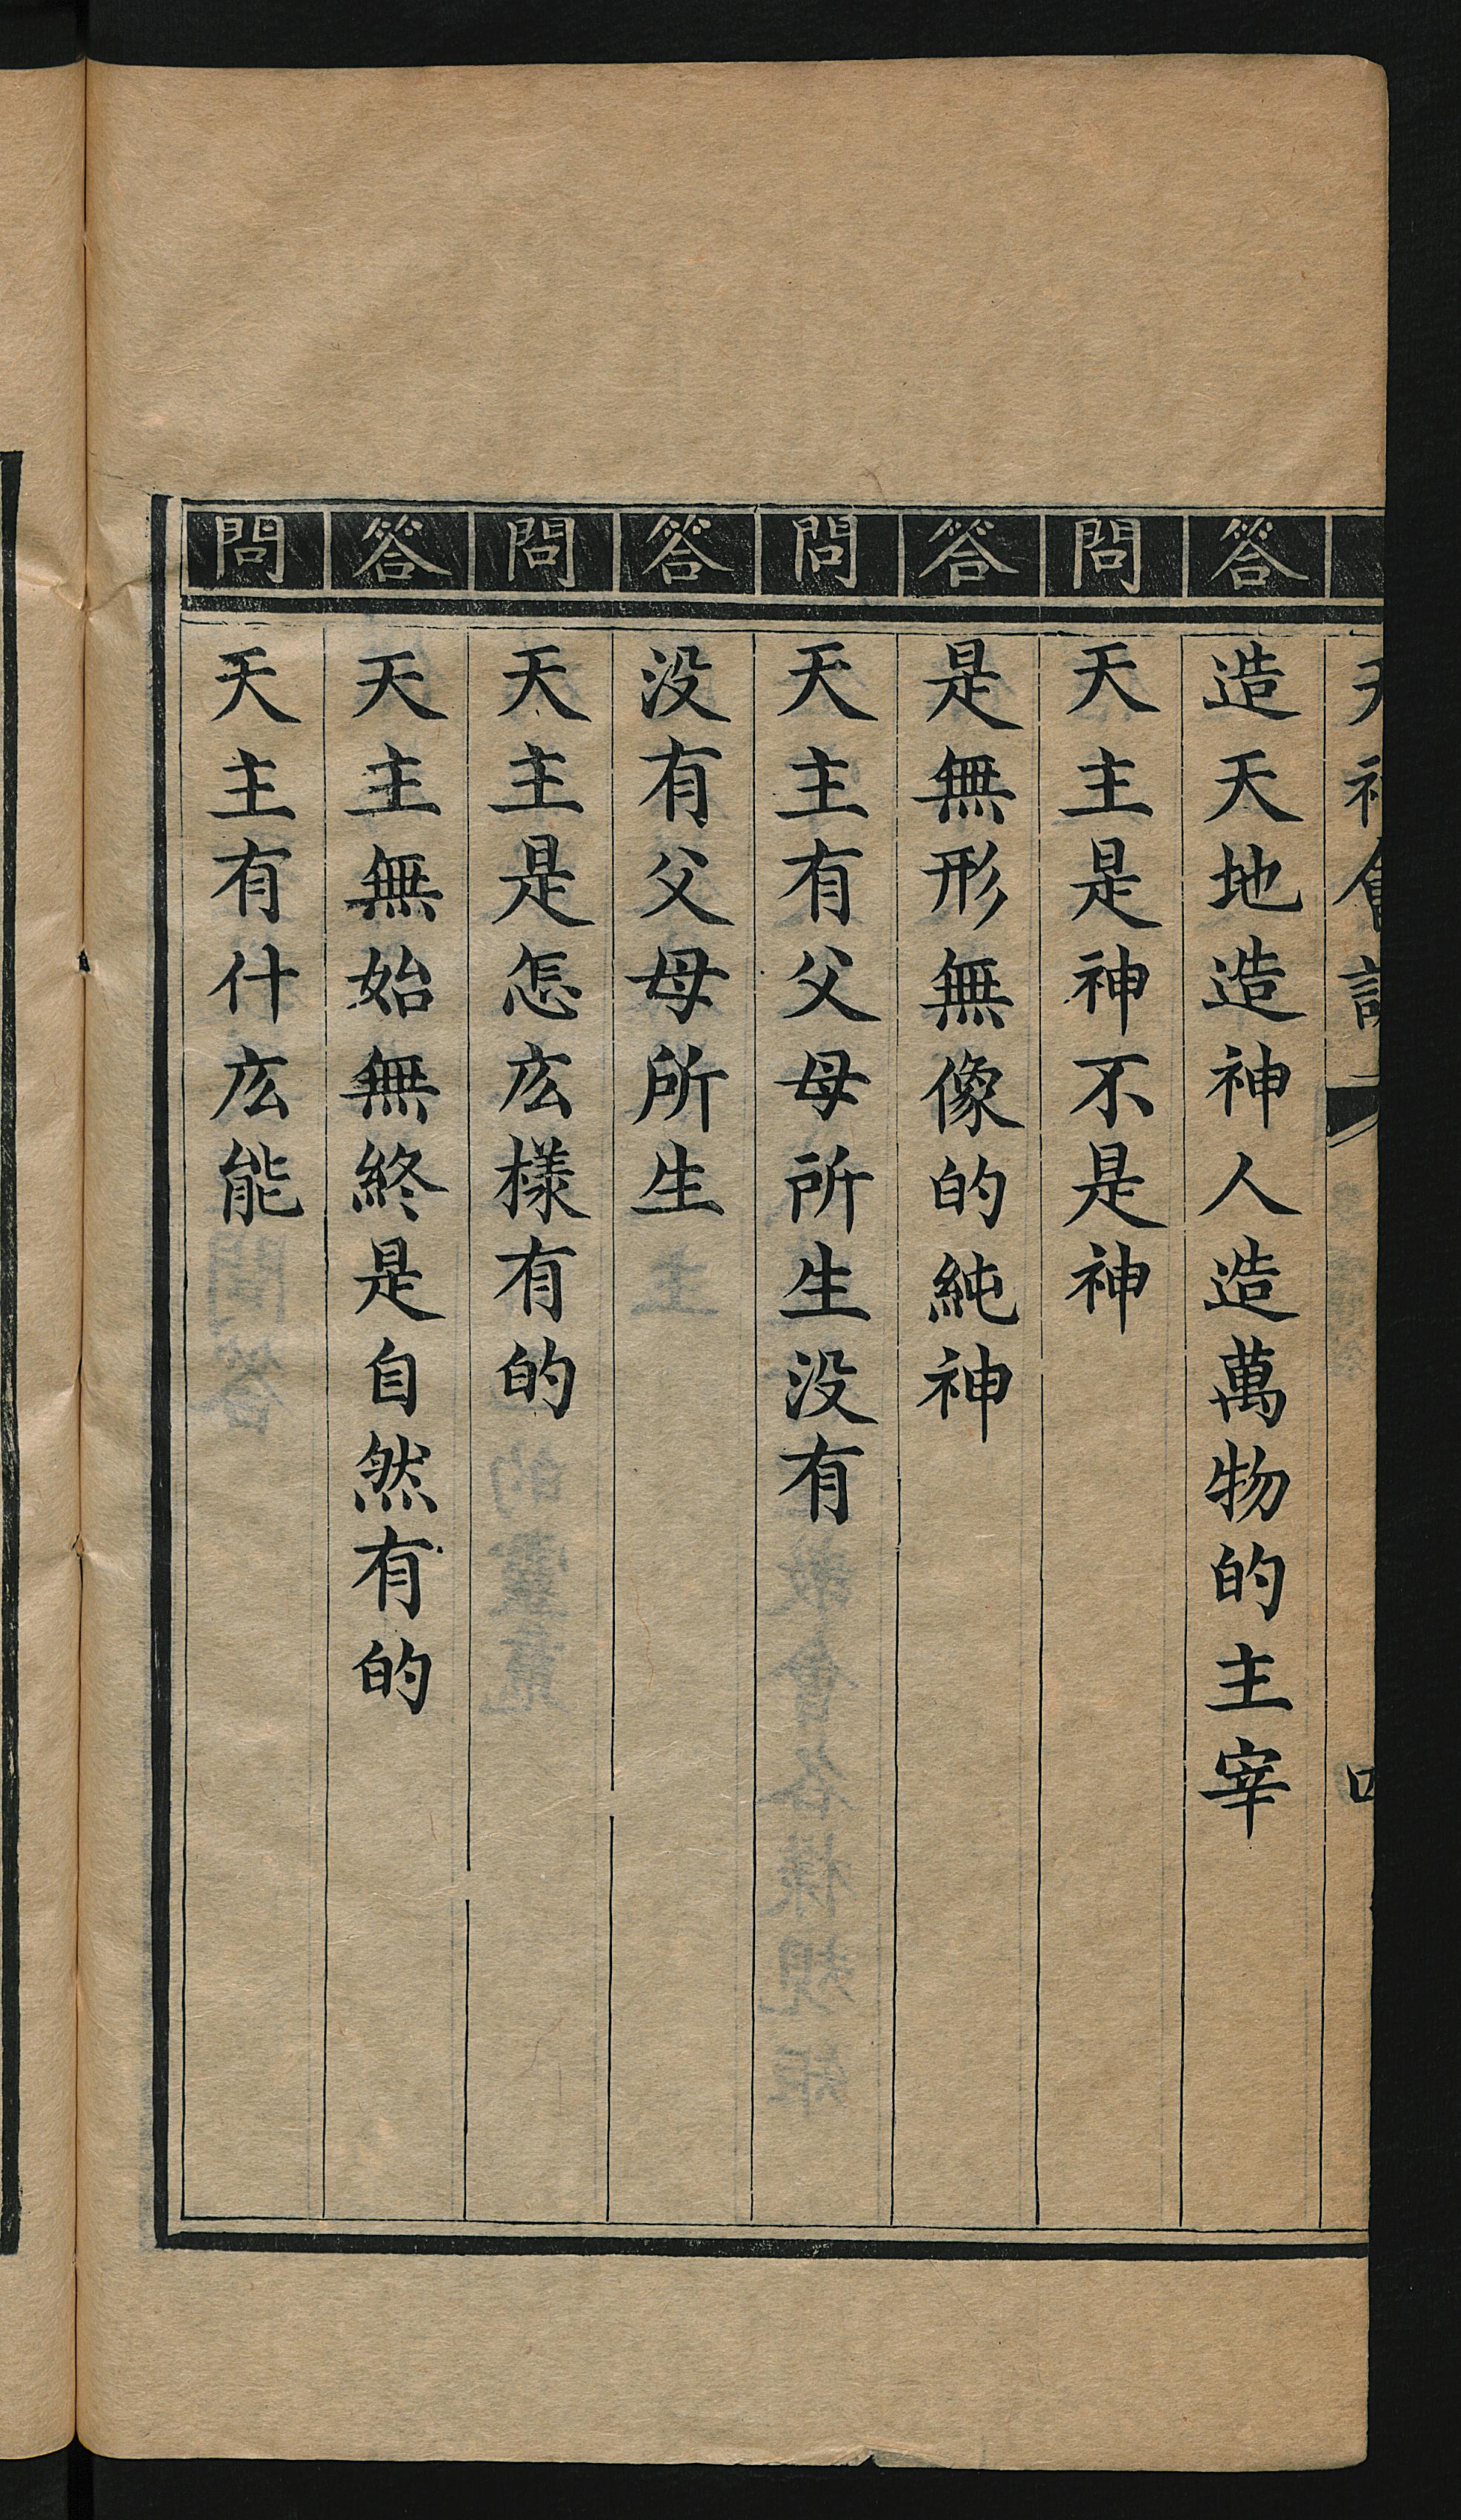 答 造天地造神人造萬物的主宰
問 天主是神不是神
答 是無形無像的純神
問 天主有父母所生没有
答 没有父母所生
問 天主是怎庅樣有的
答 天主無始無終是自然有的
問 天主有什庅能